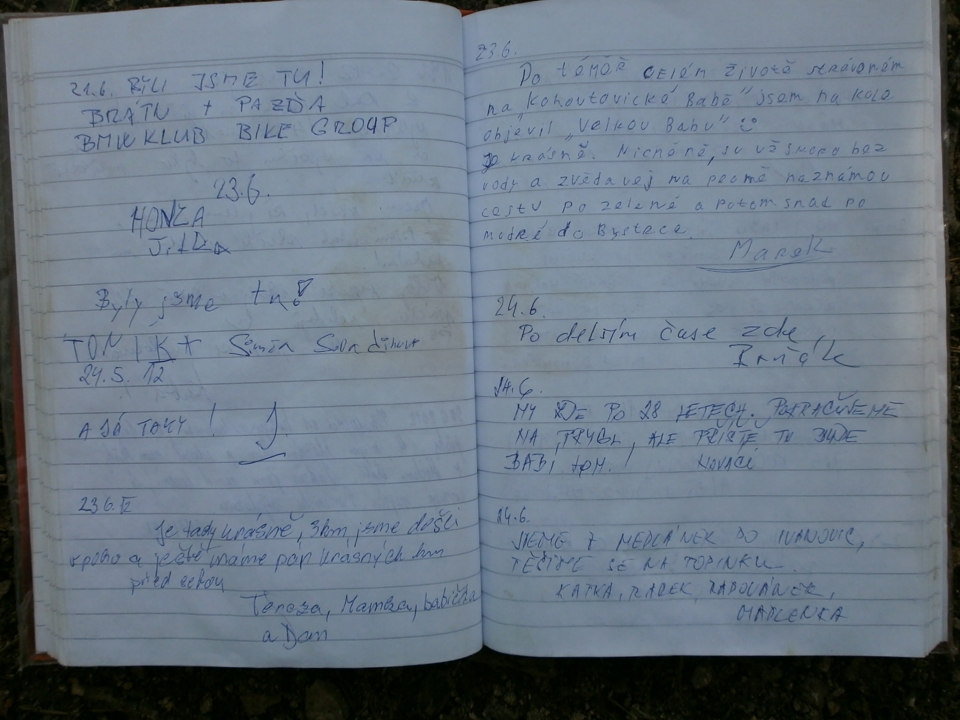 21.6. BYLI JSME TU!
BRÁTU + PAZĎA
BMW KLUB BIKE GROUP
23.6.
HONZA
JIRKA
Byly jsme tu!
TONIK +
24.5. 12
A JÁ TAKY! J
23.6.12
Je tady krásně, 3km jsme došli
v poho a ještě máme pár krásných km
před sebou
Tereza, Mamka, babička
a Dan
23.6.
Po téměř celém životě stráveném
na Kohoutovické Babě" jsem na kole
objevil "Velkou Babu"
Je krásně. Nicméně, su už skoro bez
vody a zvědavej na pecmě neznámou
cestu po zelené a potom snad po
modré do Bystrce.
Marek
24.6.
Po delším čase zde
24.6.
MY ZDE PO 28 LETECH. POKRAČUJEME
NA, ALE PŘÍŠTĚ TU BUDE
NOVÁCI
24.6.
JDEME Z MEDLÁNEK DO IVANOVIC,
TĚŠÍME SE NA TOPINKU.
KATKA, RADEK, RADOVÁNEK,
MADLENKA